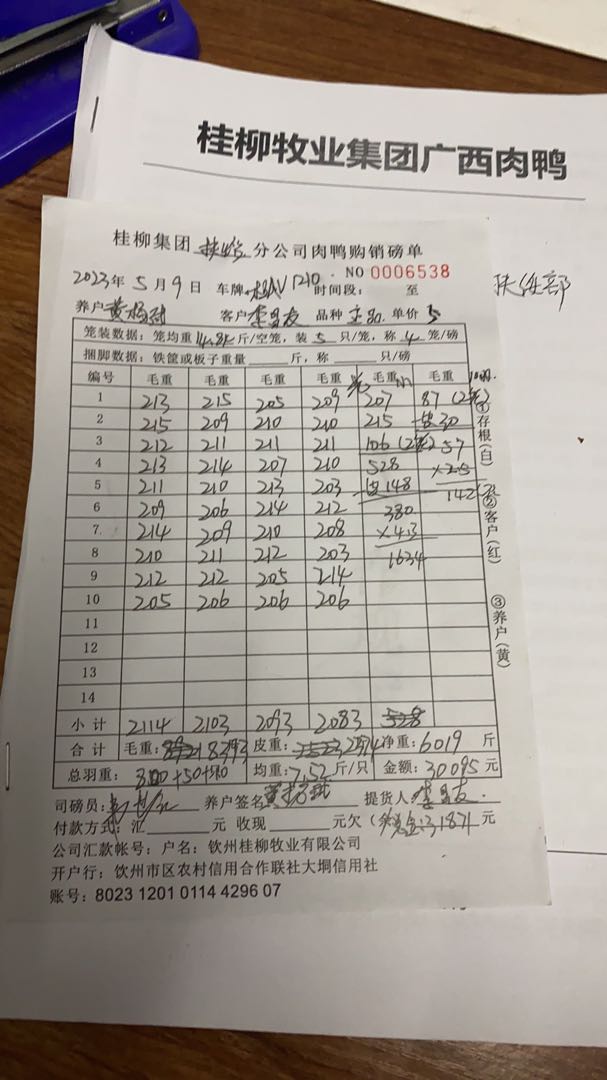 桂柳牧业集团广西肉鸭
桂柳集团 分公司肉鸭购销磅单
2023年 5月 9日 车牌 1210 时间段: 至 NO 0006538
养户 黄 客户 李 友 品种 单价 5
笼装数据: 笼均重 14.8 斤/空笼, 装 5 只/笼, 称 4 笼/磅
捆脚数据: 铁筐或板子重量 斤, 称 只/磅
编号 毛重 毛重 毛重 毛重 毛重 毛重
1 213 215 205 209 207 87
2 215 209 210 210 215 30
3 212 211 211 211 106 57
4 213 214 207 210 528 ×2.5
5 211 210 213 203 148
6 209 206 214 212 380
7 214 209 210 208 ×4.3
8 210 211 212 203 1634
9 212 212 205 214
10 205 206 206 206
11
12
13
14
小计 2114 2103 2093 2083 528
合计 毛重: 8393 皮重: 2374 净重: 6019 斤
总羽重: +50+ 均重: 7.52 斤/只 金额: 30095 元
司磅员: 养户签名 黄 提货人: 李 友
付款方式: 汇 元 收现 元欠 31871 元
公司汇款帐号: 户名: 钦州桂柳牧业有限公司
开户行: 钦州市区农村信用合作联社大垌信用社
账号: 8023 1201 0114 4296 07
①存根(白)
②客户(红)
③养户(黄)